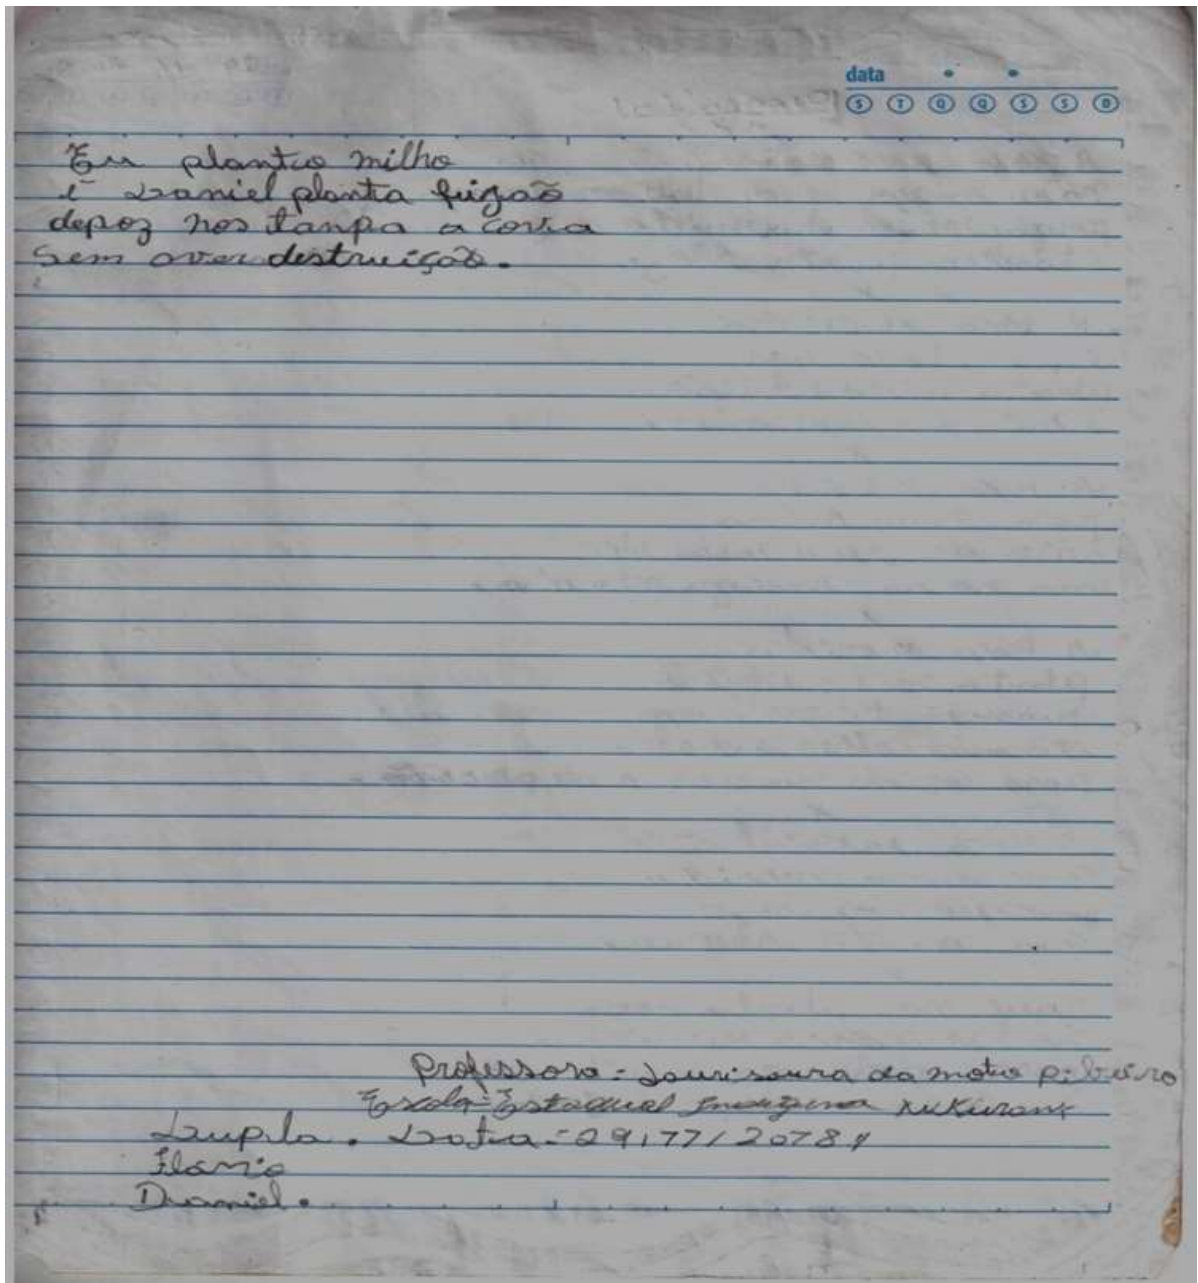 data
S T Q Q S S D
Eu plantio milho
é Daniel planta feigão
depoz nos tanpa a cova
Sem aver destruição.
Professora = da mota Ribeiro
Escola = Estadual Indígena Xukurank
Dupla. Data =
Flavio
Daniel.